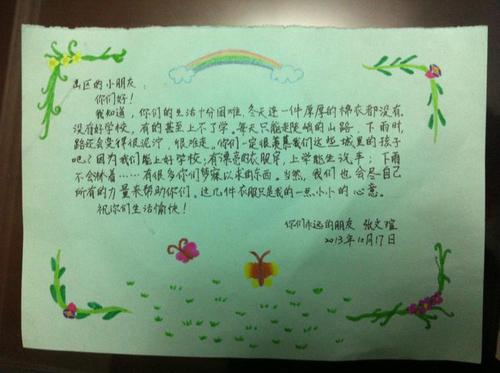 山区的小朋友：
你们好！
我知道，你们的生活十分困难，冬天连一件厚厚的棉衣都没有。
没有好学校，有的甚至上不了学。每天只能走陡峭的山路，下雨时，
路还会变得很泥泞，很难走。你们一定很羡慕我们这些城里的孩子
吧？因为我们能上好学校；有漂亮的衣服穿，上学能坐汽车；下雨
不会淋着……有很多你们梦寐以求的东西。当然，我们也会尽自己
所有的力量来帮助你们，这几件衣服只是我的一点小小的心意。
祝你们生活愉快！
你们永远的朋友 张文瑄
2013年10月17日